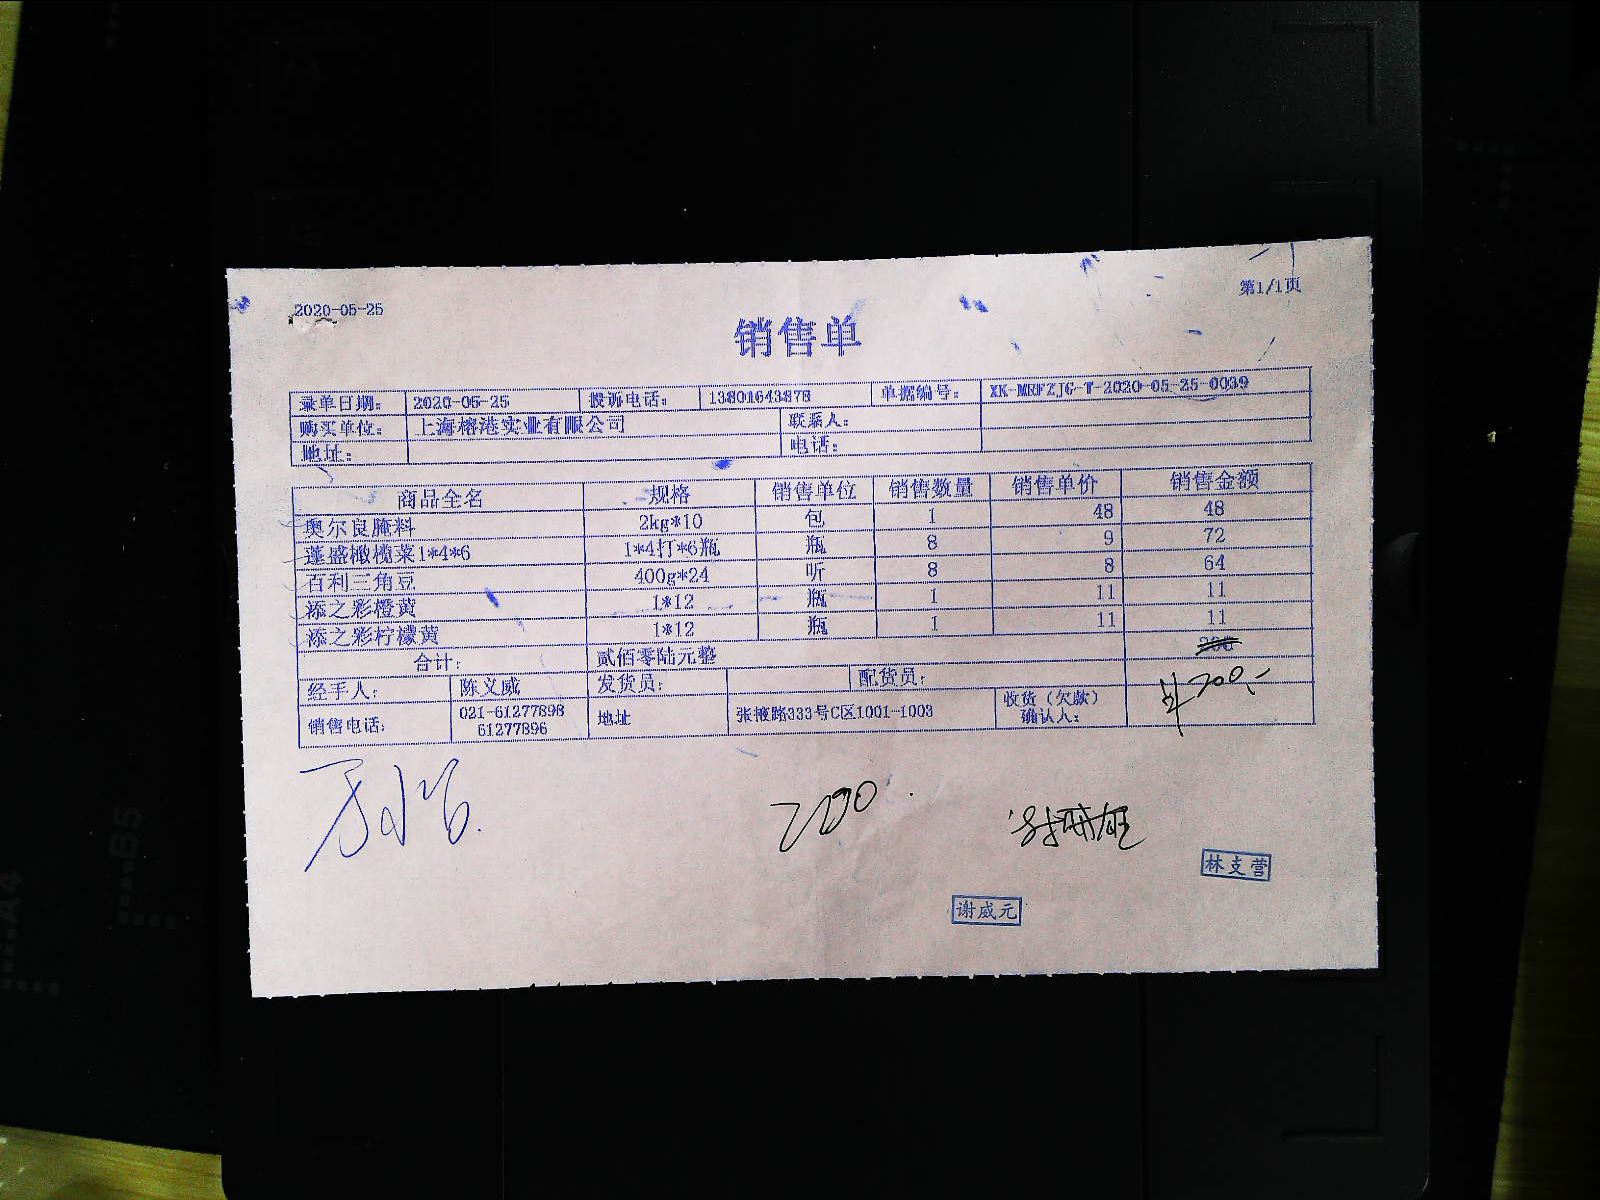 2020-05-25
第1/1页
销售单
录单日期: 2020-05-25 投诉电话: 13801643878 单据编号: XK-MRFZJG-T-2020-05-25-0039
购买单位: 上海榕港实业有限公司 联系人:
地址: 电话:
商品全名 规格 销售单位 销售数量 销售单价 销售金额
奥尔良腌料 2kg*10 包 1 48 48
蓬盛橄榄菜1*4*6 1*4打*6瓶 瓶 8 9 72
百利三角豆 400g*24 听 8 8 64
添之彩橙黄 1*12 瓶 1 11 11
添之彩柠檬黄 1*12 瓶 1 11 11
合计: 贰佰零陆元整
经手人: 陈义威 发货员: 配货员: ¥200,-
销售电话: 021-61277898 61277896 地址 张掖路333号C区1001-1003 收货(欠款)确认人:
200
林支营
谢威元
A4
B5